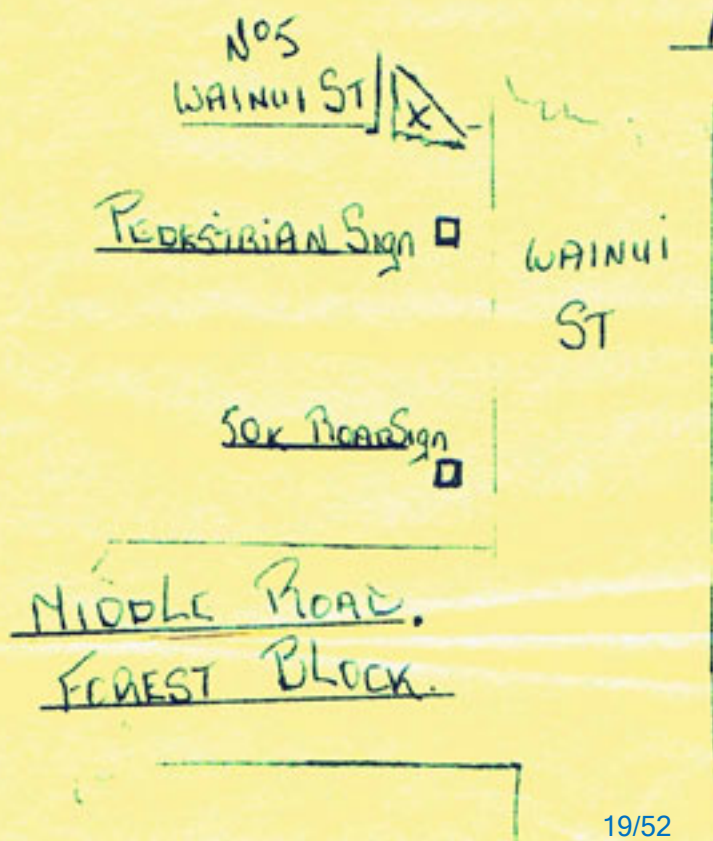 No5
WAINUI ST
X
PEDESTRIAN Sign
WAINUI
ST
50K ROADSign
MIDDLE ROAD.
FOREST BLOCK.
19/52